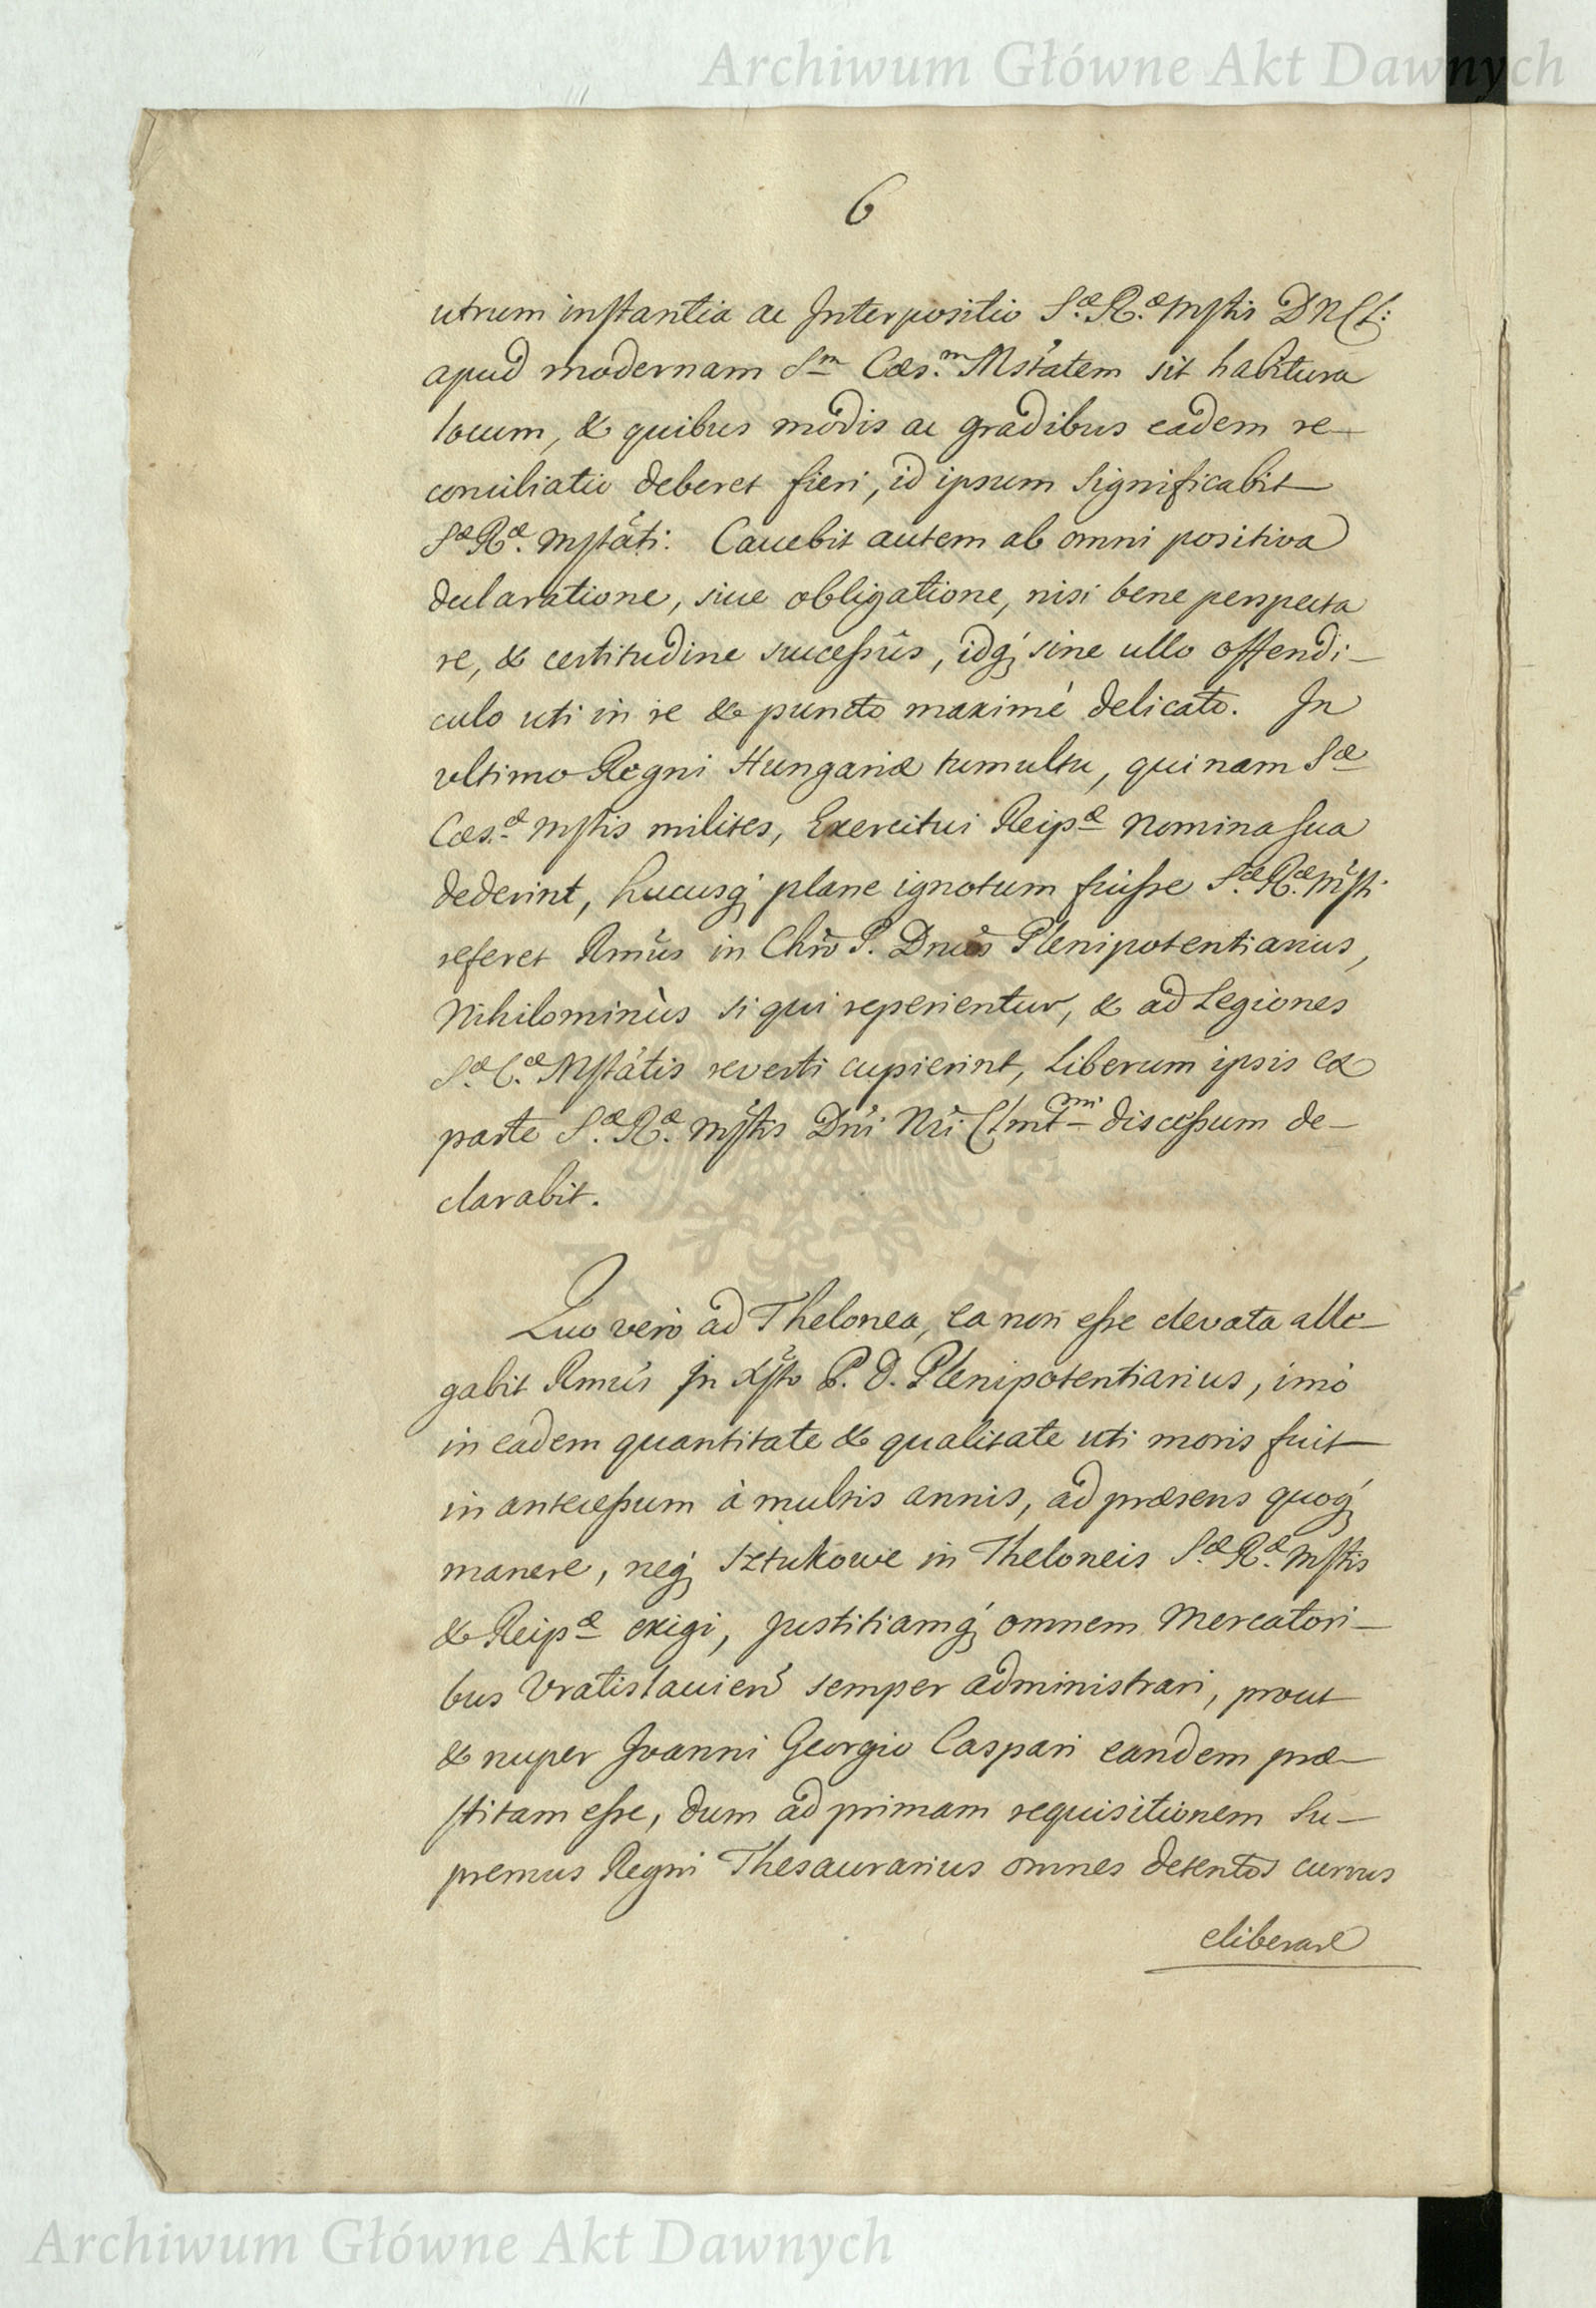 Archiwum Główne Akt Dawnych
6
utrum instantia ac Interpositio Sæ. Ræ. Mstis D N Cl:
apud modernam Sm Cæs.m Mstatem sit habitura
locum, & quibus modis ac gradibus eadem re-
conciliatio deberet fieri, id ipsum significabit
Sæ Ræ. Mstati. Cavebit autem ab omni positiva
declaratione, sive obligatione, nisi bene perspecta
re, & certitudine successûs, idq; sine ullo offendi-
culo uti in re & puncto maximè delicato. In
ultimo Regni Hungariæ tumultu, quinam Sæ
Cæs.æ Mstis milites, Exercitui Reipæ Nomina sua
dederint, hucusq; plane ignotum fuisse Sæ. Ræ. Msti
referet Rmus in Chro P. Dnus Plenipotentiarius,
Nihilominùs si qui reperientur, & ad Legiones
Sæ. C.æ Mstatis reverti cupierint, Liberum ipsis ex
parte Sæ. Ræ. Mstis Dni Nri Clmtmi discessum de-
clarabit.
Quo verò ad Thelonea, ea non esse elevata alle-
gabit Rmus in Xsto P. D. Plenipotentiarius, imò
in eadem quantitate & qualitate uti moris fuit
in antecessum à multis annis, ad præsens quoq;
manere, neq; sztukowe in Theloneis Sæ Ræ. Mstis
& Reipæ exigi, Justitiamq; omnem Mercatori-
bus Vratislavien semper administrari, prout
& nuper Joanni Georgio Caspari eandem præ-
stitam esse, dum ad primam requisitionem Su-
premus Regni Thesaurarius omnes detentos currus
eliberare
Archiwum Główne Akt Dawnych